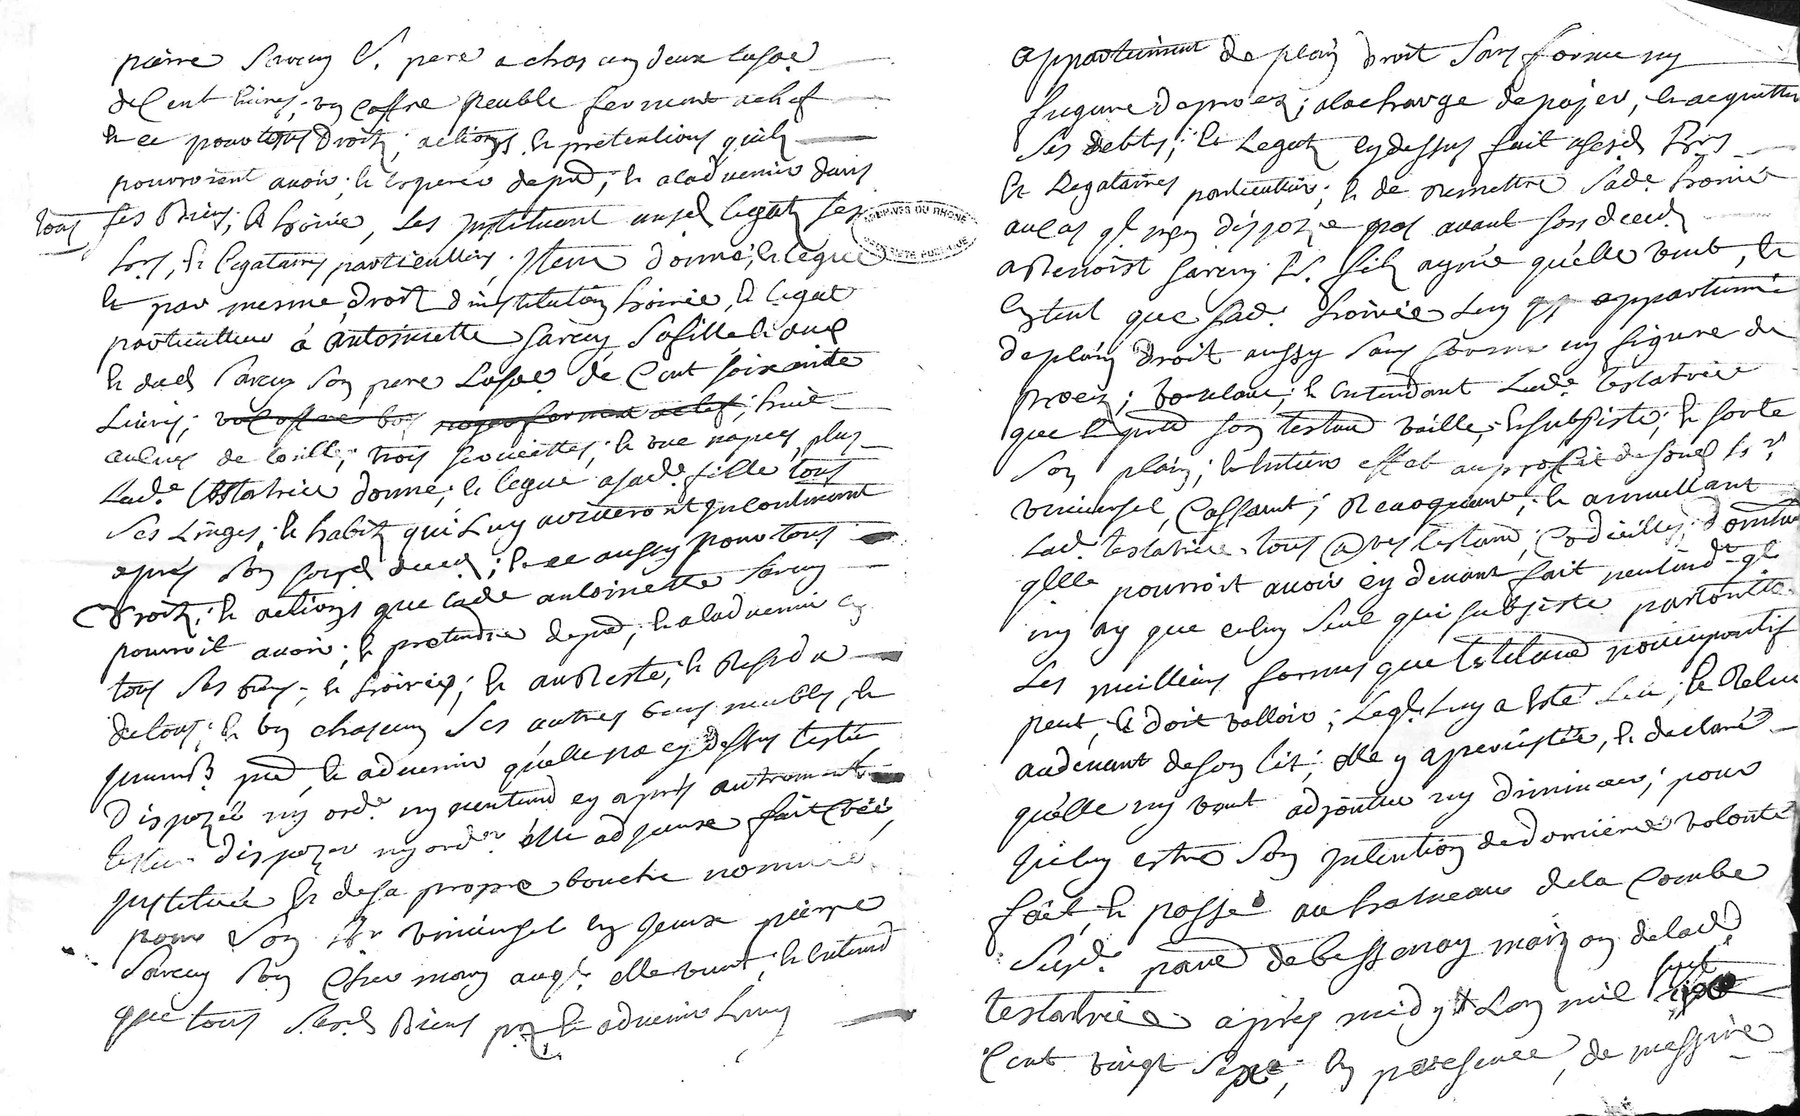 pierre Sarcey d. pere a chascung deux la so͞e
de Cent livres, un coffre peuble fermant a clef
et ce pour tous droitz, actions, et pretentions quilz
pourroient avoir, et esperer de pnt, et a ladvenir dans
tous ses Biens, et hoirie, Les Instituant ausd legatz ses
hrs, et legataires particulliers, Item donne, et legue
et par mesme droit dinstitution hoirie, et legat
particullier à antoinette Sarcey sa fille et aud
et dud Sarcey son pere La so͞e de Cent soixante
Livres, un coffre bois fermant a clef, huit
aulnes de toille, trois serviettes, et une nappe, plus
Lad.e testatrice donne, et legue a sad.e fille tous
ses Linges, et habitz qui Luy arriveront Incontinant
apres son susd deced, et ce aussy pour tous
Droitz, et actions que lade antoinette Sarcey
pourroit avoir, et pretendre de pnt, et a ladvenir en
tous ses biens, et hoirie, et au Reste, et Residu
de tous, et ung chascung ses autres biens meubles, et
Immeub. pnt, et advenir quelle na cy dessus testé
Disposé ny ord.e ny pretend cy apres autrement
tester disposer ny ord.er elle ad Jceux fait Créé,
Institué et de sa propre bouche nommé
pour son hr universel en Jceux pierre
Sarcey son Cher mary auql. elle veut, et entend
que tous sesd Biens pnt et advenir Luy
ARCHIVES DU RHÔNE
appartiennent de plain droit sans forme ny
figure de proces, a la charge de payer, et acquitter
ses debtes, et Legatz cy dessus fait a sesd hrs
et Legataires particulier, et de remettre sad.e hoirie
au cas ql. nen dispoze pas avant son deced
a Benoist Sarcey d. filz ayné quelle veut, et
entent que sad.e hoirie Luy appartienne
de plain droit aussy sans forme ny figure de
proces, voulant, et entendant Lad.e testatrice
que le pnt son testam vaille, et subsiste, et sorte
son plain, et entier effet au profit de sond hr
universel, Cassant, Revoquant, et annullant
Lad. testatrice tous autres testam, Codicilles, donations
qelle pourroit avoir cy devant fait pretend ql
ny ay que celuy seul qui subsiste par toutte
Les meillieurs formes que testament noncupatif
peut, et doit valloir, Leql. Luy a Esté Leu, et Releu
au devant de son lit, elle y a percisté, et declaré
quelle ny veut adjoutter ny diminuer, pour
quoy estre son Intention de derniere volonté
fait, et passé au hameau de la Combe
Susd.e parr de bessenay maison de lad
testatrice apres midy Lan mil sept
Cent vingt Sept, en presence, de messire